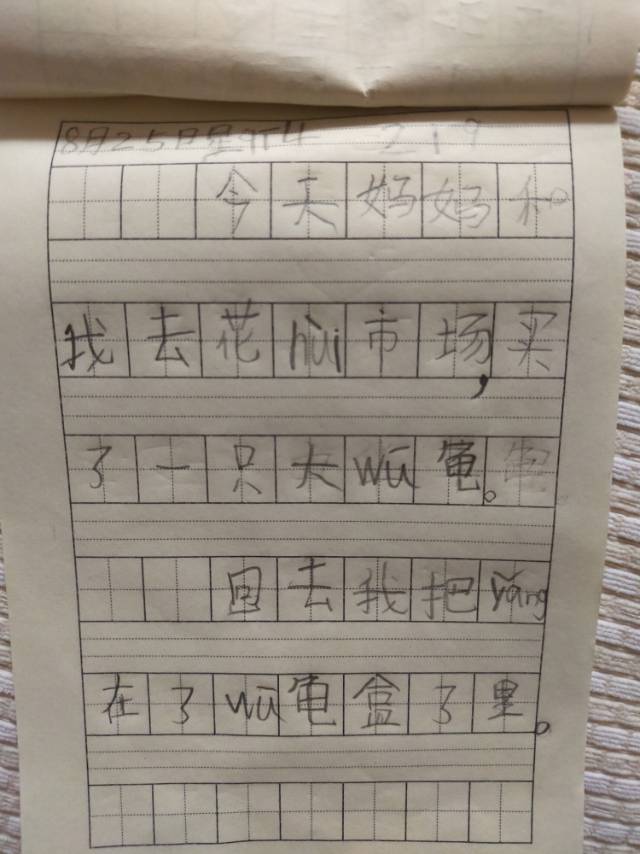 8月25日星期4 219
今天妈妈和
我去花huì市场,买
了一只大wū龟。
回去我把yǎng
在了wū龟盒了里。